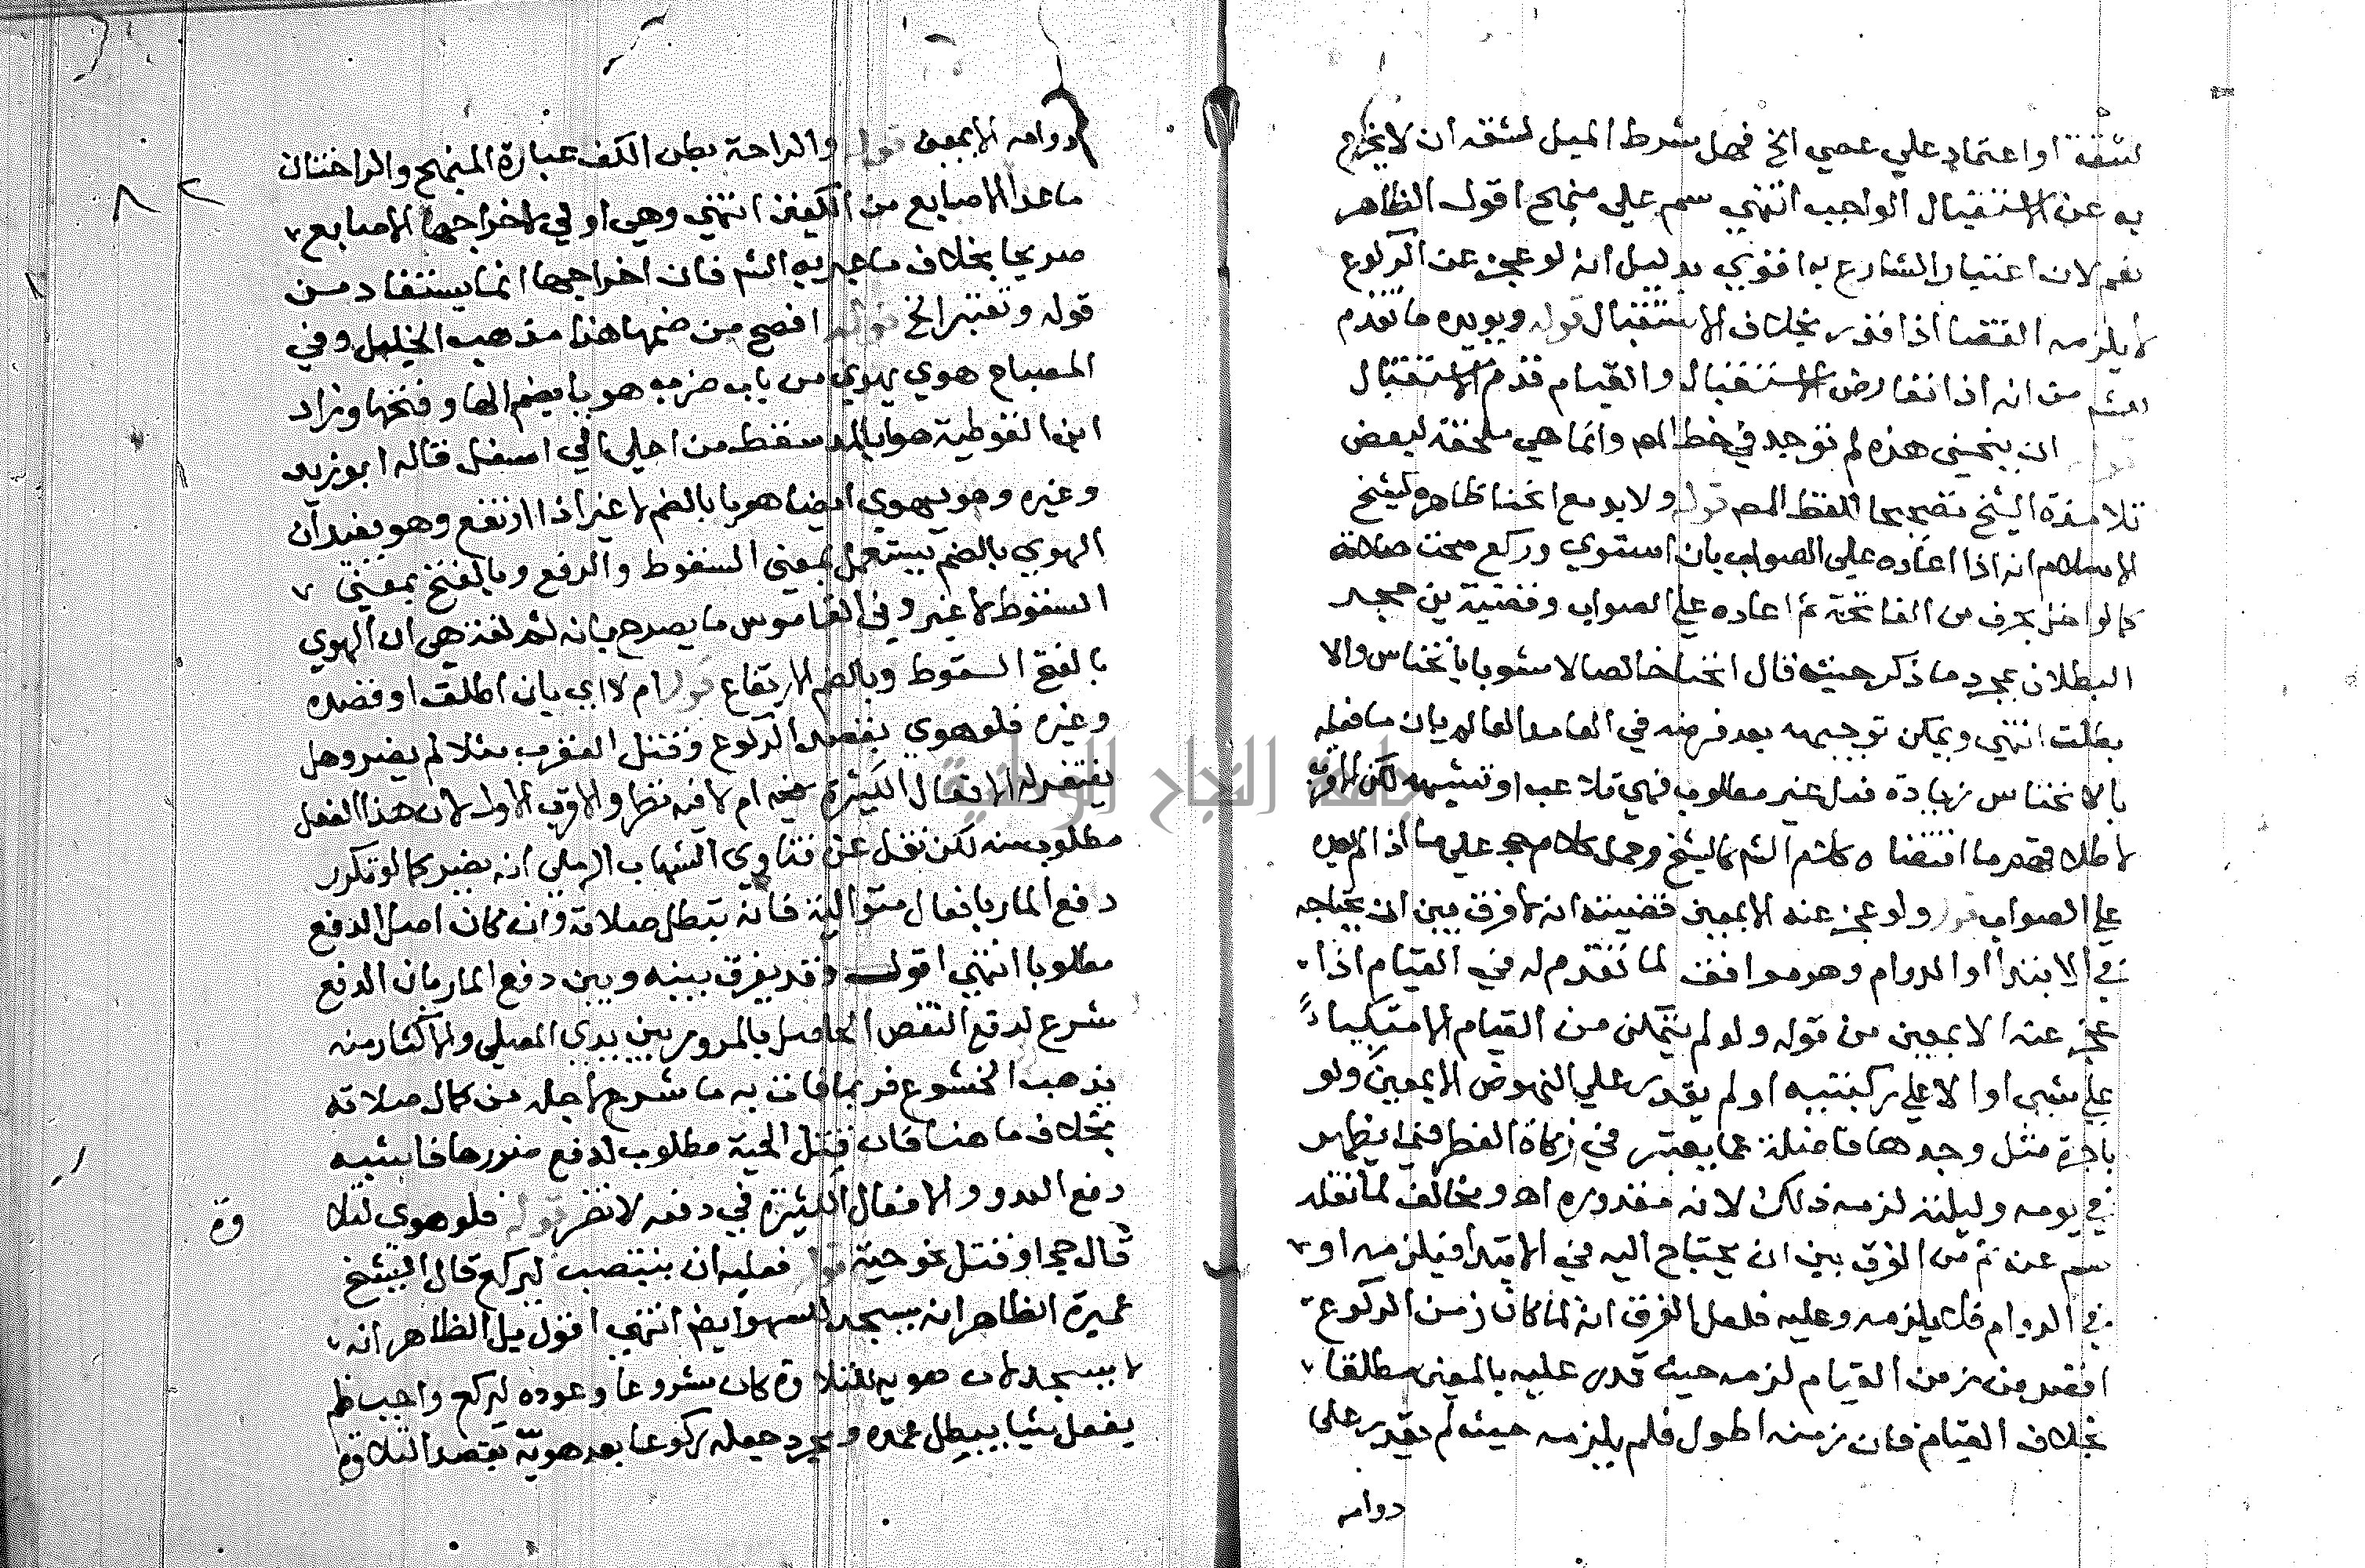 لشقه او اعتماد علي عصي الخ فهل شرط الميل لشقه ان لا يخرج
به عن الاستقبال الواجب انتهي سم علي منهج اقول الظاهر
نعم لان اعتبار الشارع به اقوي بدليل انه لو عجز عن الركوع
لا يلزمه القضا اذا قدر بخلاف الاستقبال قوله ويويده ما تقدم
للشم من انه اذا تعارض الاستقبال والقيام قدم الاستقبال
قوله ان ينحني هذه لم توجد في خط المص وانما هي ملحقة لبعض
تلامذة الشيخ تصحيحا للفظ المص قوله ولا يو مع انحنا ظاهره كشيخ
الاسلام انه اذا اعاده علي الصواب بان استوي وركع صحت صلاته
كما لو اخل بحرف من الفاتحة ثم اعاده علي الصواب وقضية بن حجر
البطلان بمجرد ما ذكر حيث قال انحنا خالصا لا مشوبا بانخناس والا
بطلت انتهي ويمكن توجيهه بعد فرضه في العامد العالم بان ما فعله
بالانخناس زيادة فعل غير مطلوب فهي تلاعب او تشبهه لكن الاقرب
لاطلاقهم ما اقتضاه كلام الشم كالشيخ وحمل كلام حجر علي ما اذا لم يعده
علي الصواب قوله ولو عجز عنه الا بمعين قضيته انه لا فرق بين ان يحتاجه
في الابتدا او الدوام وهو موافق لما تقدم له في القيام اذا
عجز عنه الا بمعين من قوله ولو لم يتمكن من القيام الا متكيا
علي شي او الا علي ركبتيه او لم يقدر علي النهوض الا بمعين ولو
باجرة مثل وجدها فاضلة عما يعتبر في زكاة الفطر فيما يظهر
في يومه وليلته لزمه ذلك لانه مقدوره اهـ ومخالف لما نقله
سم عن م من الفرق بين ان يحتاج اليه في الابتدا فيلزمه او
في الدوام فلا يلزمه وعليه فلعل الفرق انه لما كان زمن الركوع
اقصر من زمن القيام لزمه حيث قدر عليه بالمعين مطلقا
بخلاف القيام فان زمنه اطول فلم يلزمه حيث لم يقدر علي
دوامه
دوامه الا بمعين قوله والراحة بطن الكف عبارة المنهج والراحتان
ما عدا الاصابع من الكفين انتهي وهي اولي لاخراجها الاصابع
صريحا بخلاف ما عبر به الشم فان اخراجها انما يستفاد من
قوله وتعتبر الخ قوله افصح من ضمها هذا مذهب الخليل وفي
المصباح هوي يهوي من باب ضرب هويا بضم الها وفتحها وزاد
ابن القوطية هوابالمد سقط من اعلي الي اسفل قاله ابو زيد
وغيره وهو يهوي ايضا هويا بالضم لا غير اذا ارتفع وهو يفيد ان
الهوي بالضم يستعمل بمعني السقوط والرفع وبالفتح بمعني
السقوط لا غير وفي القاموس ما يصرح بانه ثم لغة هي ان الهوي
بالفتح السقوط وبالضم الارتفاع قوله ام لا اي بان اطلق او قصده
وغيره فلو هوي بقصد الركوع وقتل العقرب مثلا لم يضر وهل
يغتفر له الافعال الكثيرة حينئذ ام لا فيه نظر والاقرب الاول لان هذا الفعل
مطلوب منه لكن نقل عن فتاوي الشهاب الرملي انه يضر كما لو تكرر
دفع المار بافعال متوالية فانه تبطل صلاته وان كان اصل الدفع
مطلوبا انتهي اقول وقد يفرق بينه وبين دفع المار بان الدفع
شرع لدفع النقص الحاصل بالمرور بين يدي المصلي والاكثار منه
يذهب الخشوع فربما فات به ما شرع لاجله من كمال صلاته
بخلاف ما هنا فان قتل الحية مطلوب لدفع ضررها فاشبه
دفع العدو والافعال الكثيرة في دفعه لا تضر قوله فلو هوي لتلا
وة
قال حجر او قتل نحو حية قوله فعليه ان ينتصب ليركع قال الشيخ
عميرة الظاهر انه يسجد للسهو ايضا انتهي اقول بل الظاهر انه
لا يسجد لان هويه للتلاوة كان مشروعا وعوده ليركع واجب فلم
يفعل شيا يبطل عمده ومجرد جعله ركوعا بعد هويه بقصد التلاوة